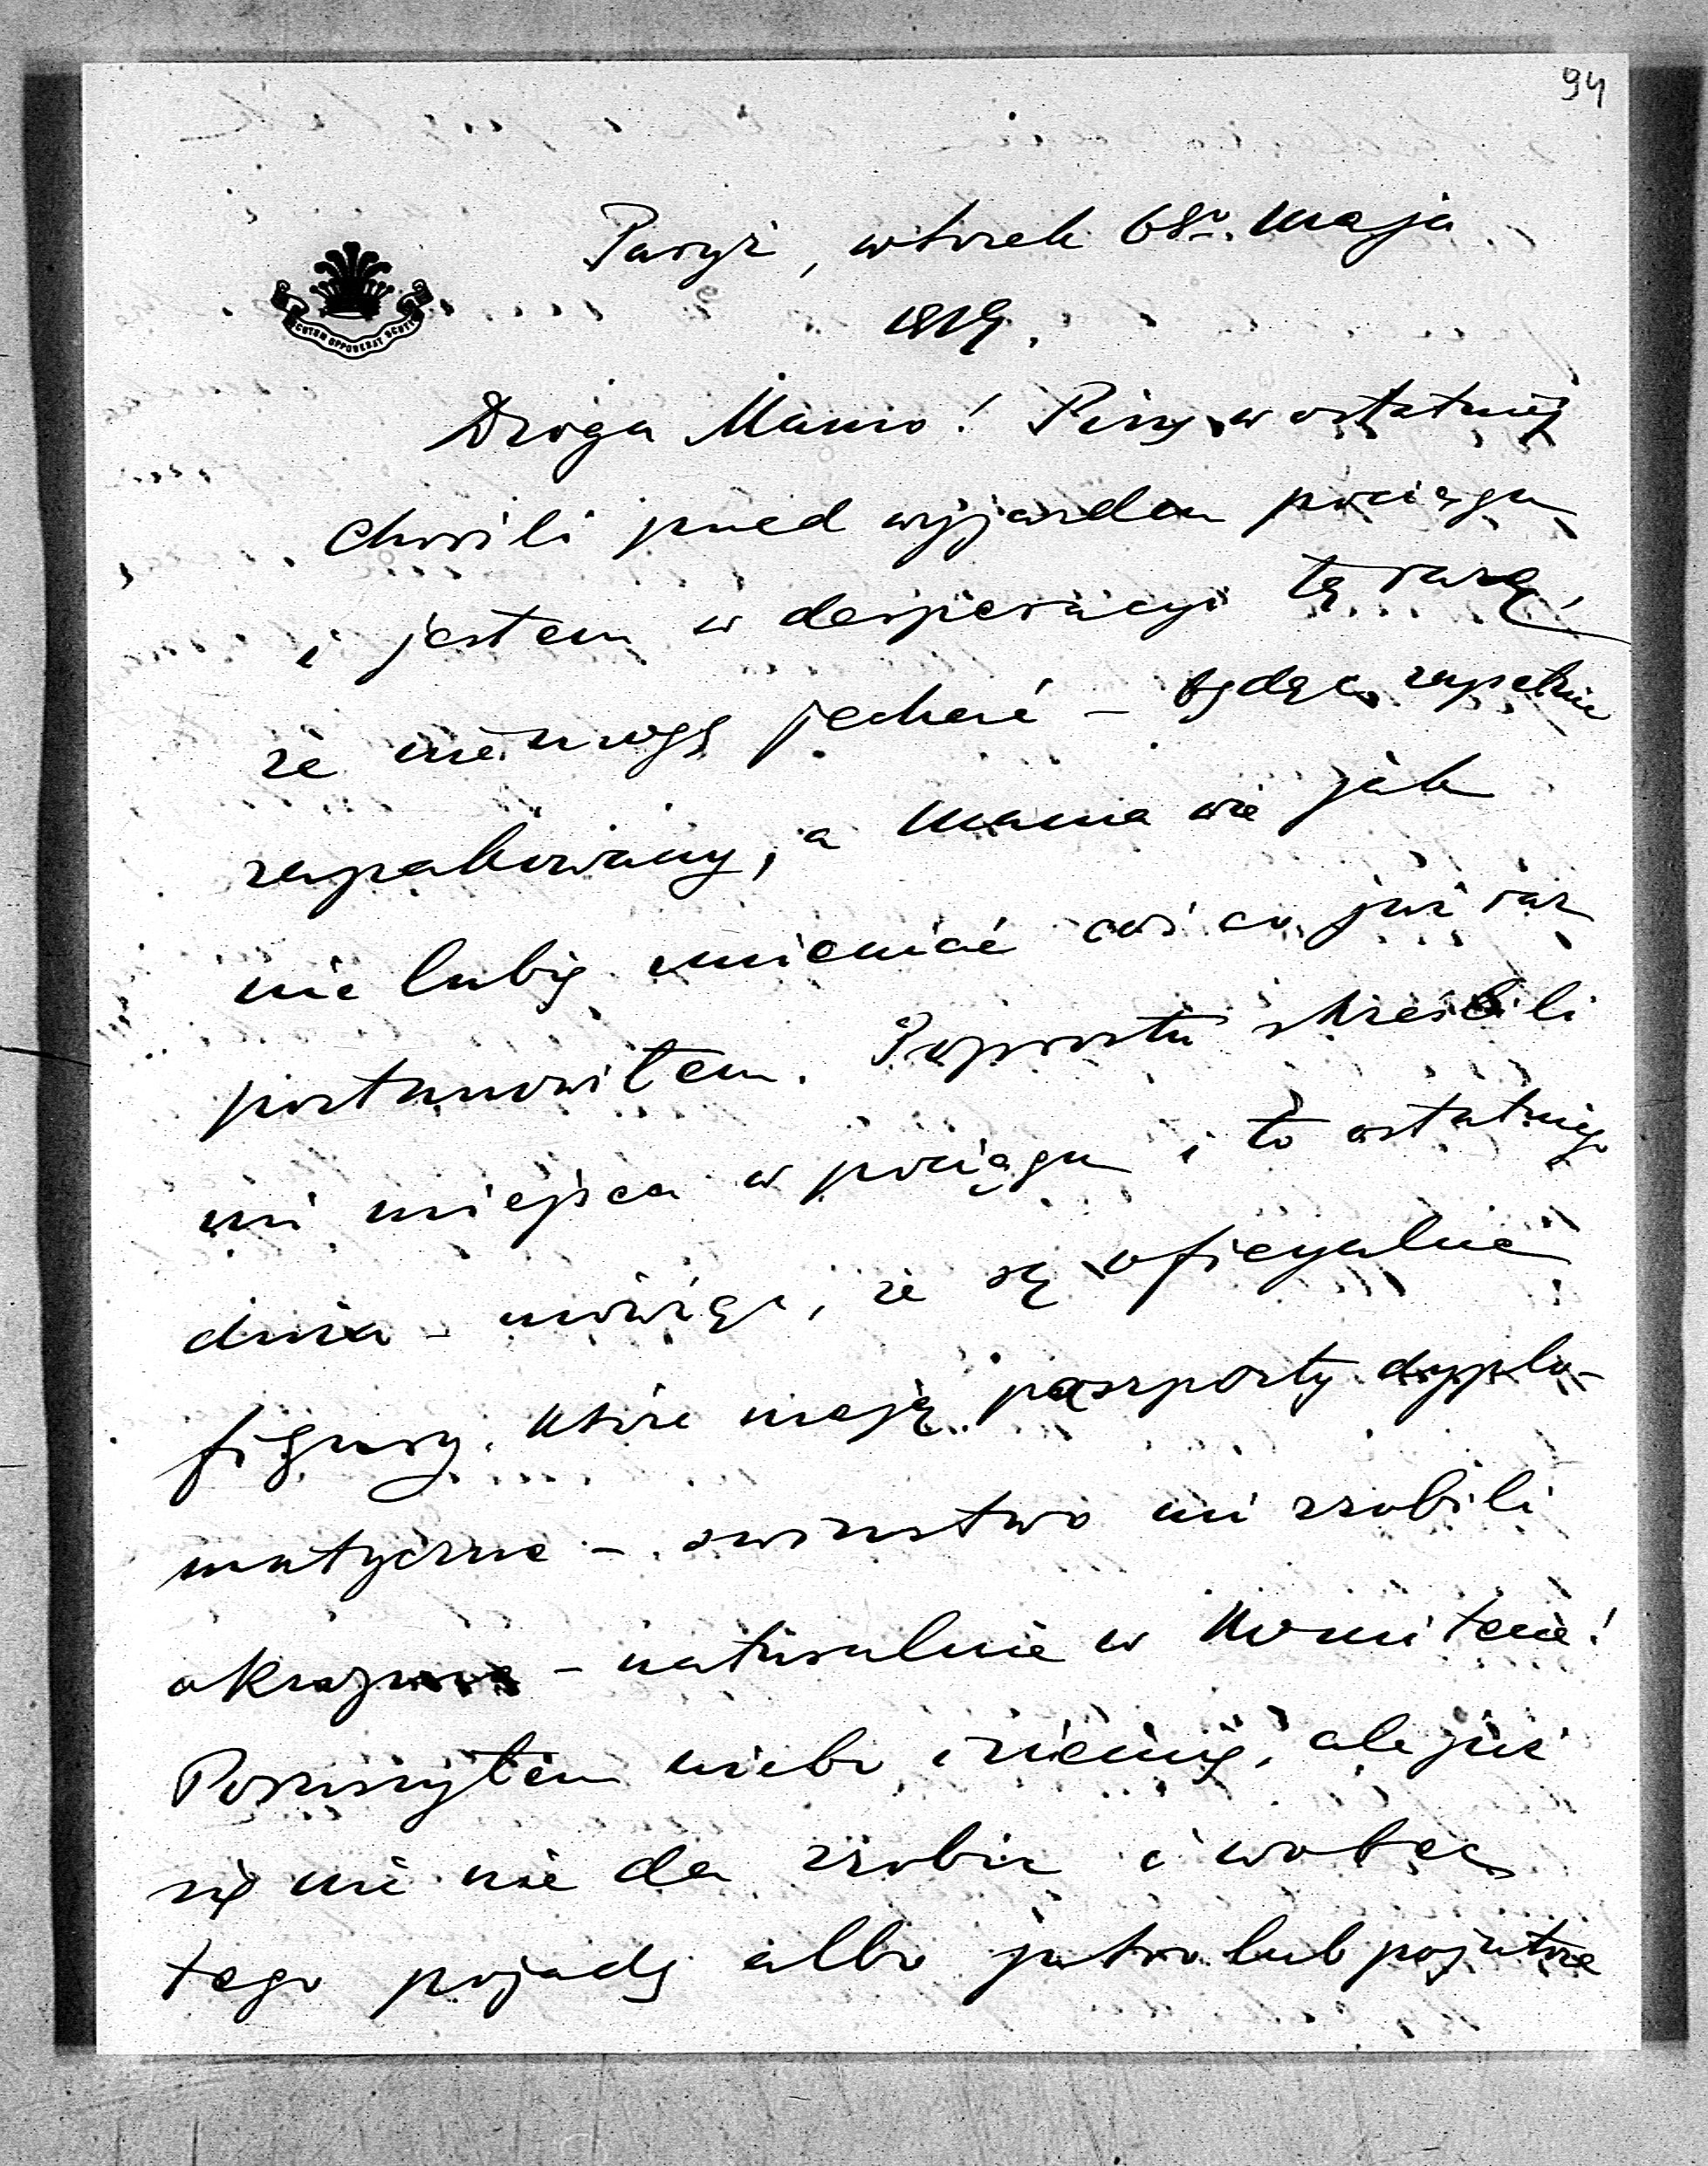 94
Paryż, wtorek 6go Maja
1919.
SCUTUM OPPONEBAT SCUTIS
Droga Mamo! Piszę w ostatniej
chwili przed wyjazdem pociągu
i jestem w desperacyi tą razą,
że nie mogę jechać – będąc zupełnie
zapakowany, a Mama wie jak
nie lubię zmieniać coś co już raz
postanowiłem. Poprostu skreślili
mi miejsca w pociągu i to ostatniego
dnia – mówiąc, że są oficyalne
figury, które mają paszporty dyplo-
matyczne – świństwo mi zrobili
– naturalnie w Komitecie!
Poruszyłem niebo i ziemię, ale już
się nic nie da zrobić i wobec
tego pojadę albo jutro lub pojutrze